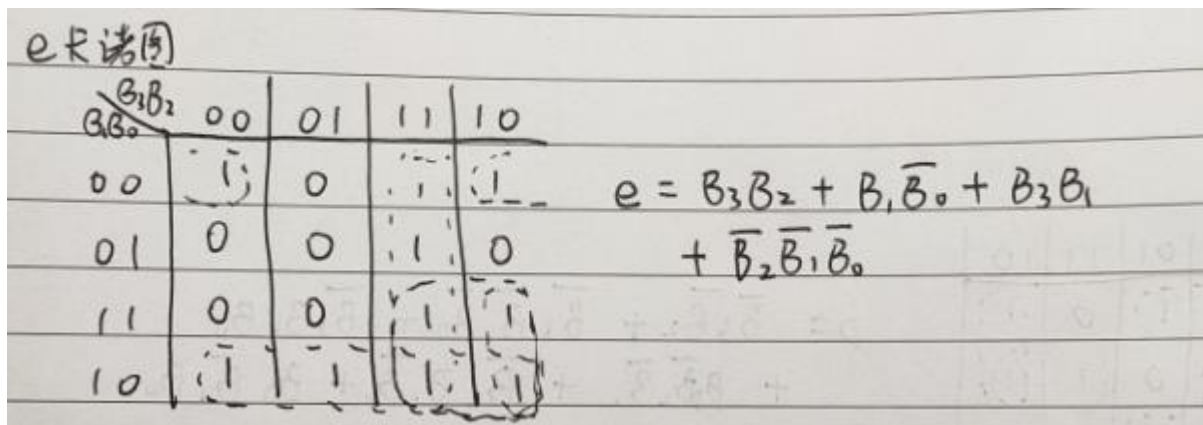 e卡诺图
B₃B₂ 00 01 11 10
B₁B₀
00 1 0 1 1
01 0 0 1 0
11 0 0 1 1
10 1 1 1 1
e = B₃B₂ + B₁B̅₀ + B₃B₁
+ B̅₂B̅₁B̅₀